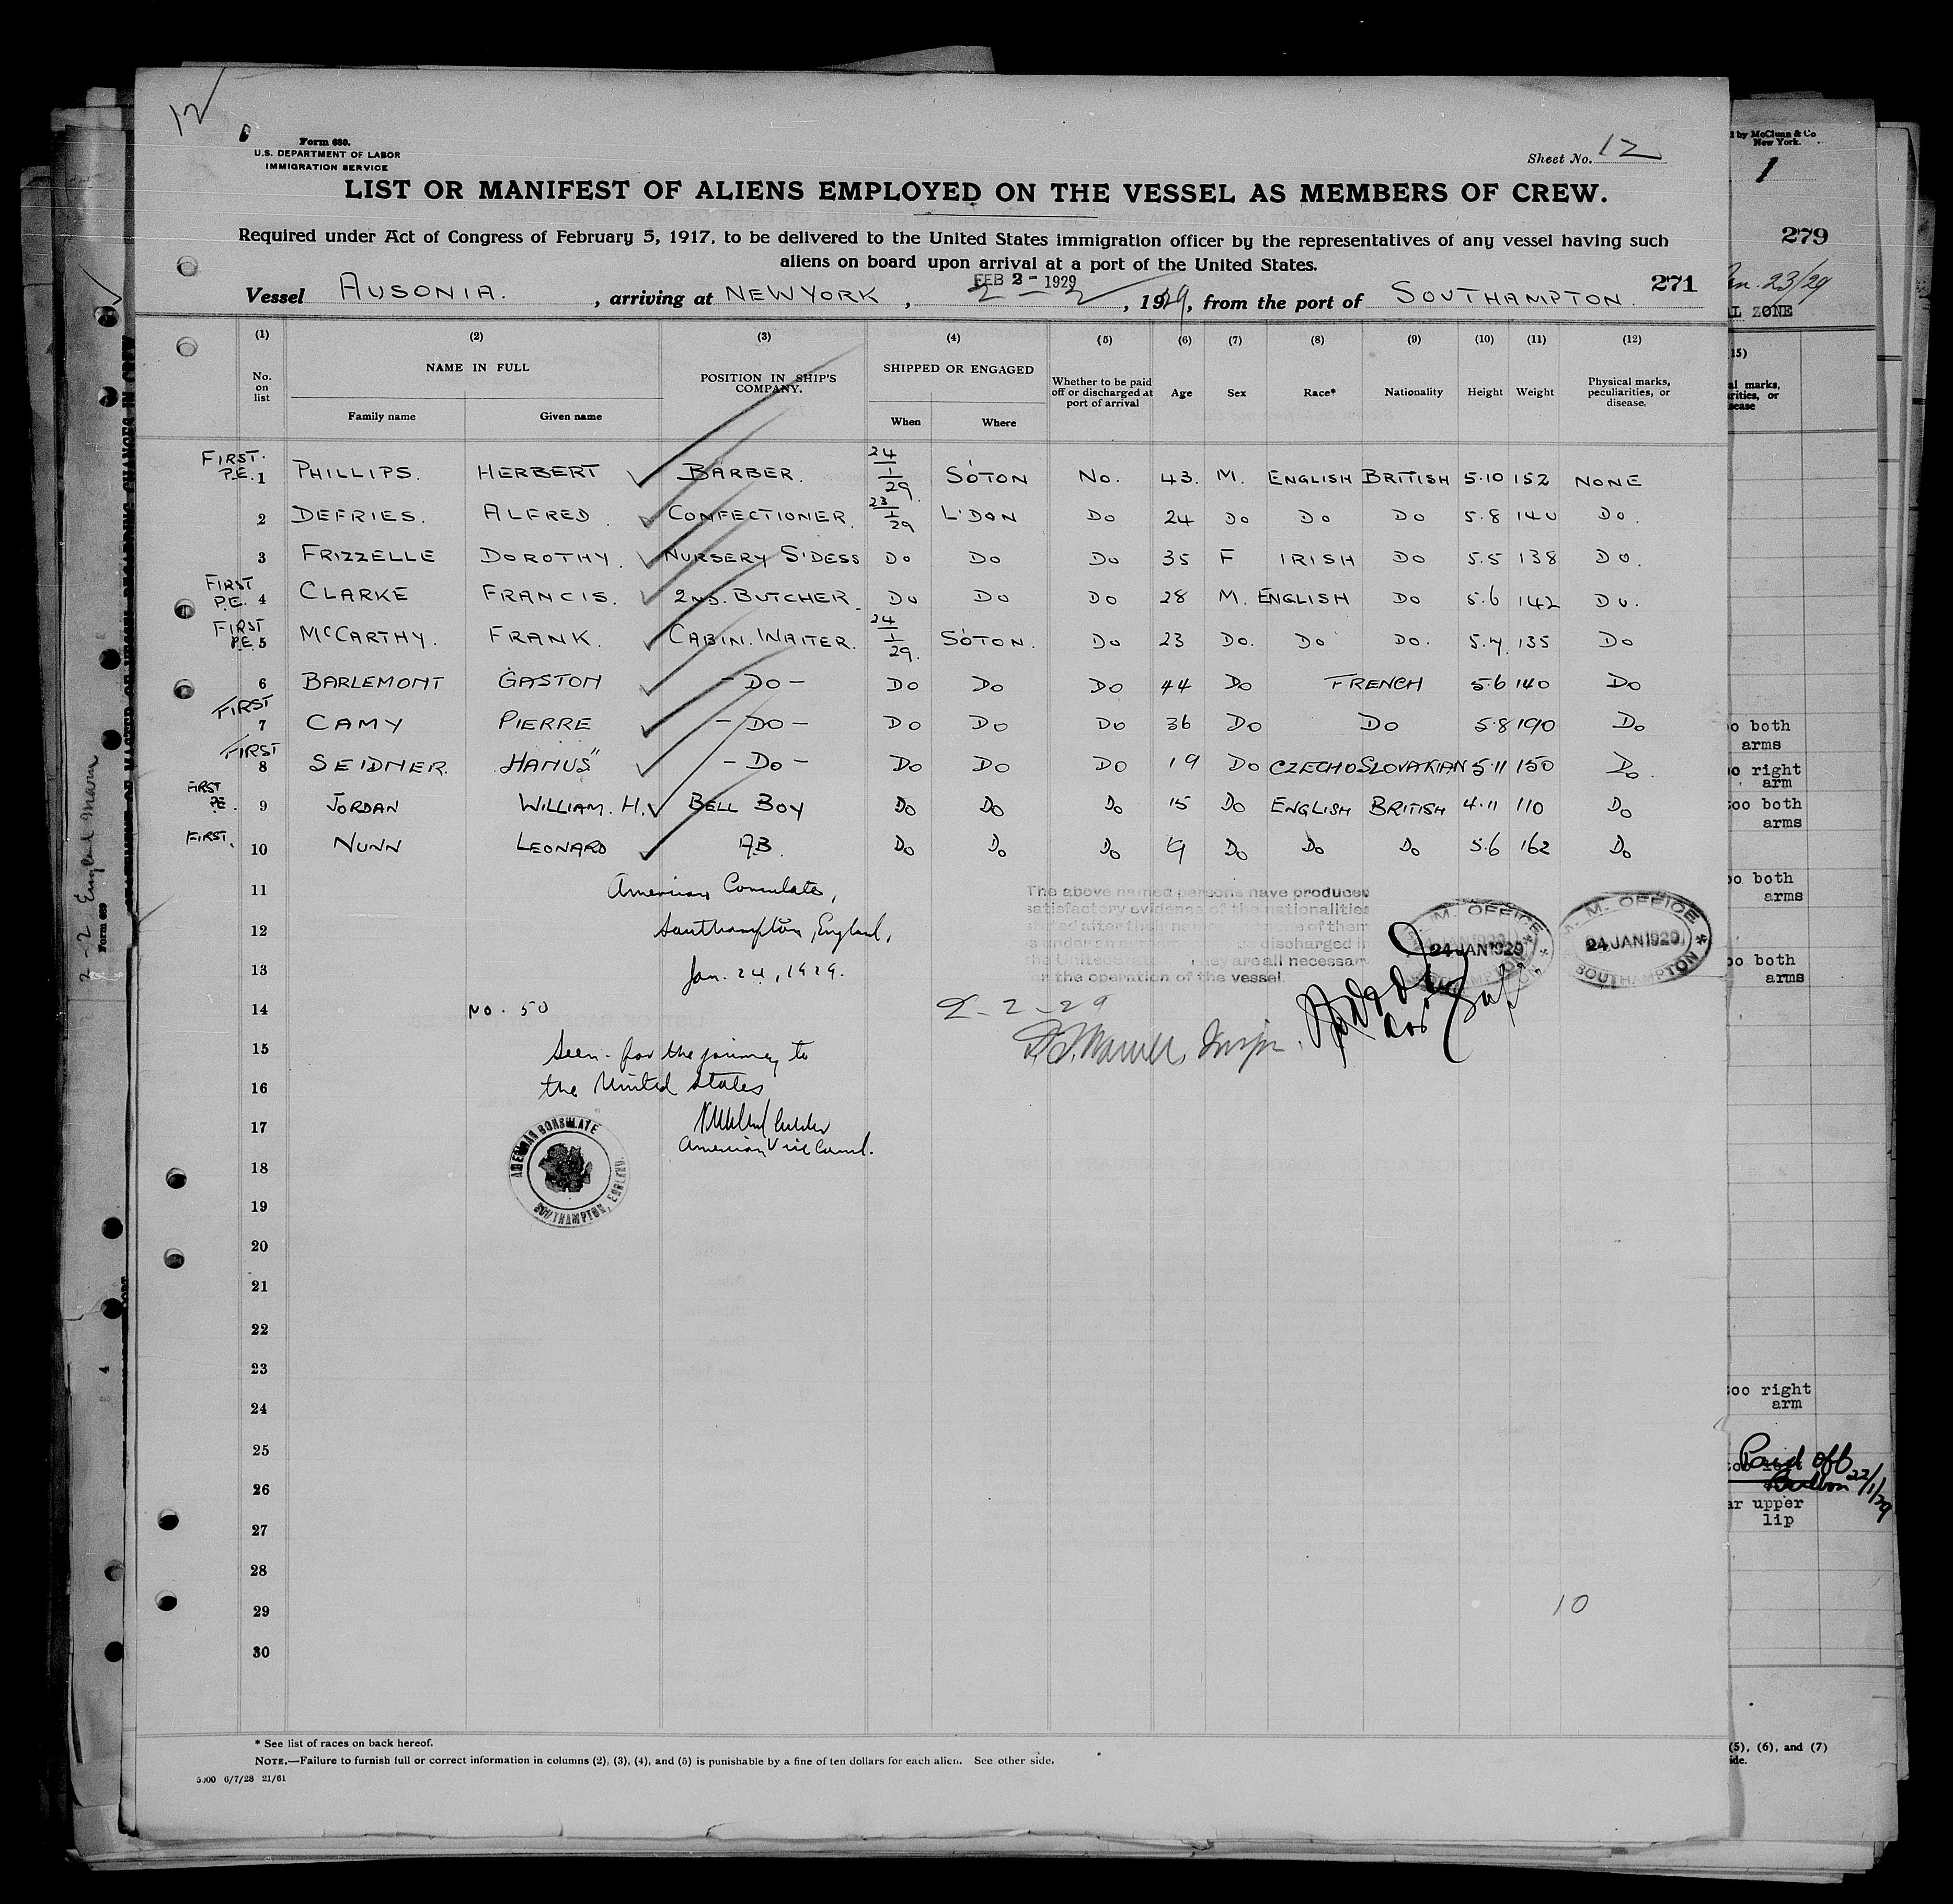 12
Form 689.
U.S. DEPARTMENT OF LABOR
IMMIGRATION SERVICE
Sheet No. 12
LIST OR MANIFEST OF ALIENS EMPLOYED ON THE VESSEL AS MEMBERS OF CREW.
Required under Act of Congress of February 5, 1917, to be delivered to the United States immigration officer by the representatives of any vessel having such
aliens on board upon arrival at a port of the United States.
FEB 2 - 1929
271
Vessel AUSONIA. , arriving at NEW YORK , 2 - 2 , 1929, from the port of SOUTHAMPTON.
(1) (2) (3) (4) (5) (6) (7) (8) (9) (10) (11) (12)
No. on list NAME IN FULL Family name Given name POSITION IN SHIP'S COMPANY. SHIPPED OR ENGAGED When Where Whether to be paid off or discharged at port of arrival Age Sex Race* Nationality Height Weight Physical marks, peculiarities, or disease.
FIRST. P.E. 1 PHILLIPS. HERBERT BARBER. 24/1/29 SOTON No. 43. M. ENGLISH BRITISH 5.10 152 NONE
2 DEFRIES. ALFRED. CONFECTIONER. 23/1/29 L'DON Do 24 Do Do Do 5.8 140 Do.
3 FRIZZELLE DOROTHY. NURSERY S'DESS Do Do Do 35 F IRISH Do 5.5 138 Do.
FIRST P.E. 4 CLARKE FRANCIS. 2ND. BUTCHER. Do Do Do 28 M. ENGLISH Do 5.6 142 Do.
FIRST P.E. 5 McCARTHY. FRANK. CABIN. WAITER. 24/1/29. SOTON. Do 23 Do. Do Do. 5.7. 135 Do
6 BARLEMONT GASTON - Do - Do Do Do 44 Do FRENCH 5.6 140 Do
FIRST 7 CAMY PIERRE - Do - Do Do Do 36 Do Do 5.8 190 Do
FIRST 8 SEIDNER. HANUS" - Do - Do Do Do 19 Do CZECHOSLOVAKIAN 5.11 150 Do.
FIRST PE. 9 JORDAN WILLIAM. H. BELL BOY Do Do Do 15 Do ENGLISH BRITISH 4.11 110 Do
FIRST. 10 NUNN LEONARD A.B. Do Do Do 19 Do Do Do 5.6 162 Do
11 American Consulate,
12 Southampton, England,
13 Jan. 24, 1929.
14 No. 50
15 Seen - for the journey to
16 the United States
17
American Vice Consul.
AMERICAN CONSULATE
SOUTHAMPTON, ENGLAND.
The above named persons have produced
satisfactory evidence of the nationalities
stated after their names
discharged in
the United States they are all necessary
for the operation of the vessel.
M. M. OFFICE
24 JAN 1929
SOUTHAMPTON
M. M. OFFICE
24 JAN 1929
SOUTHAMPTON
2-2-29
18
19
20
21
22
23
24
25
26
27
28
29
10
30
* See list of races on back hereof.
NOTE.—Failure to furnish full or correct information in columns (2), (3), (4), and (5) is punishable by a fine of ten dollars for each alien. See other side.
5000 6/7/28 21/61
2-2- England
Form 689
4
by McClunn & Co
New York.
1
279
Jan. 23/29
AL ZONE
(15)
al marks,
rities, or
sease
oo both
arms
oo right
arm
oo both
arms
oo both
arms
oo both
arms
oo right
arm
Paid off
Balboa 22/1/29
ar upper
lip
(5), (6), and (7)
ide.